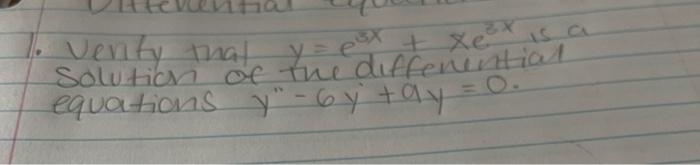 Differential Equa
1. Verify that y = e^{3x} + xe^{3x} is a
solution of the diffenential
equations y'' - 6y' + 9y = 0.